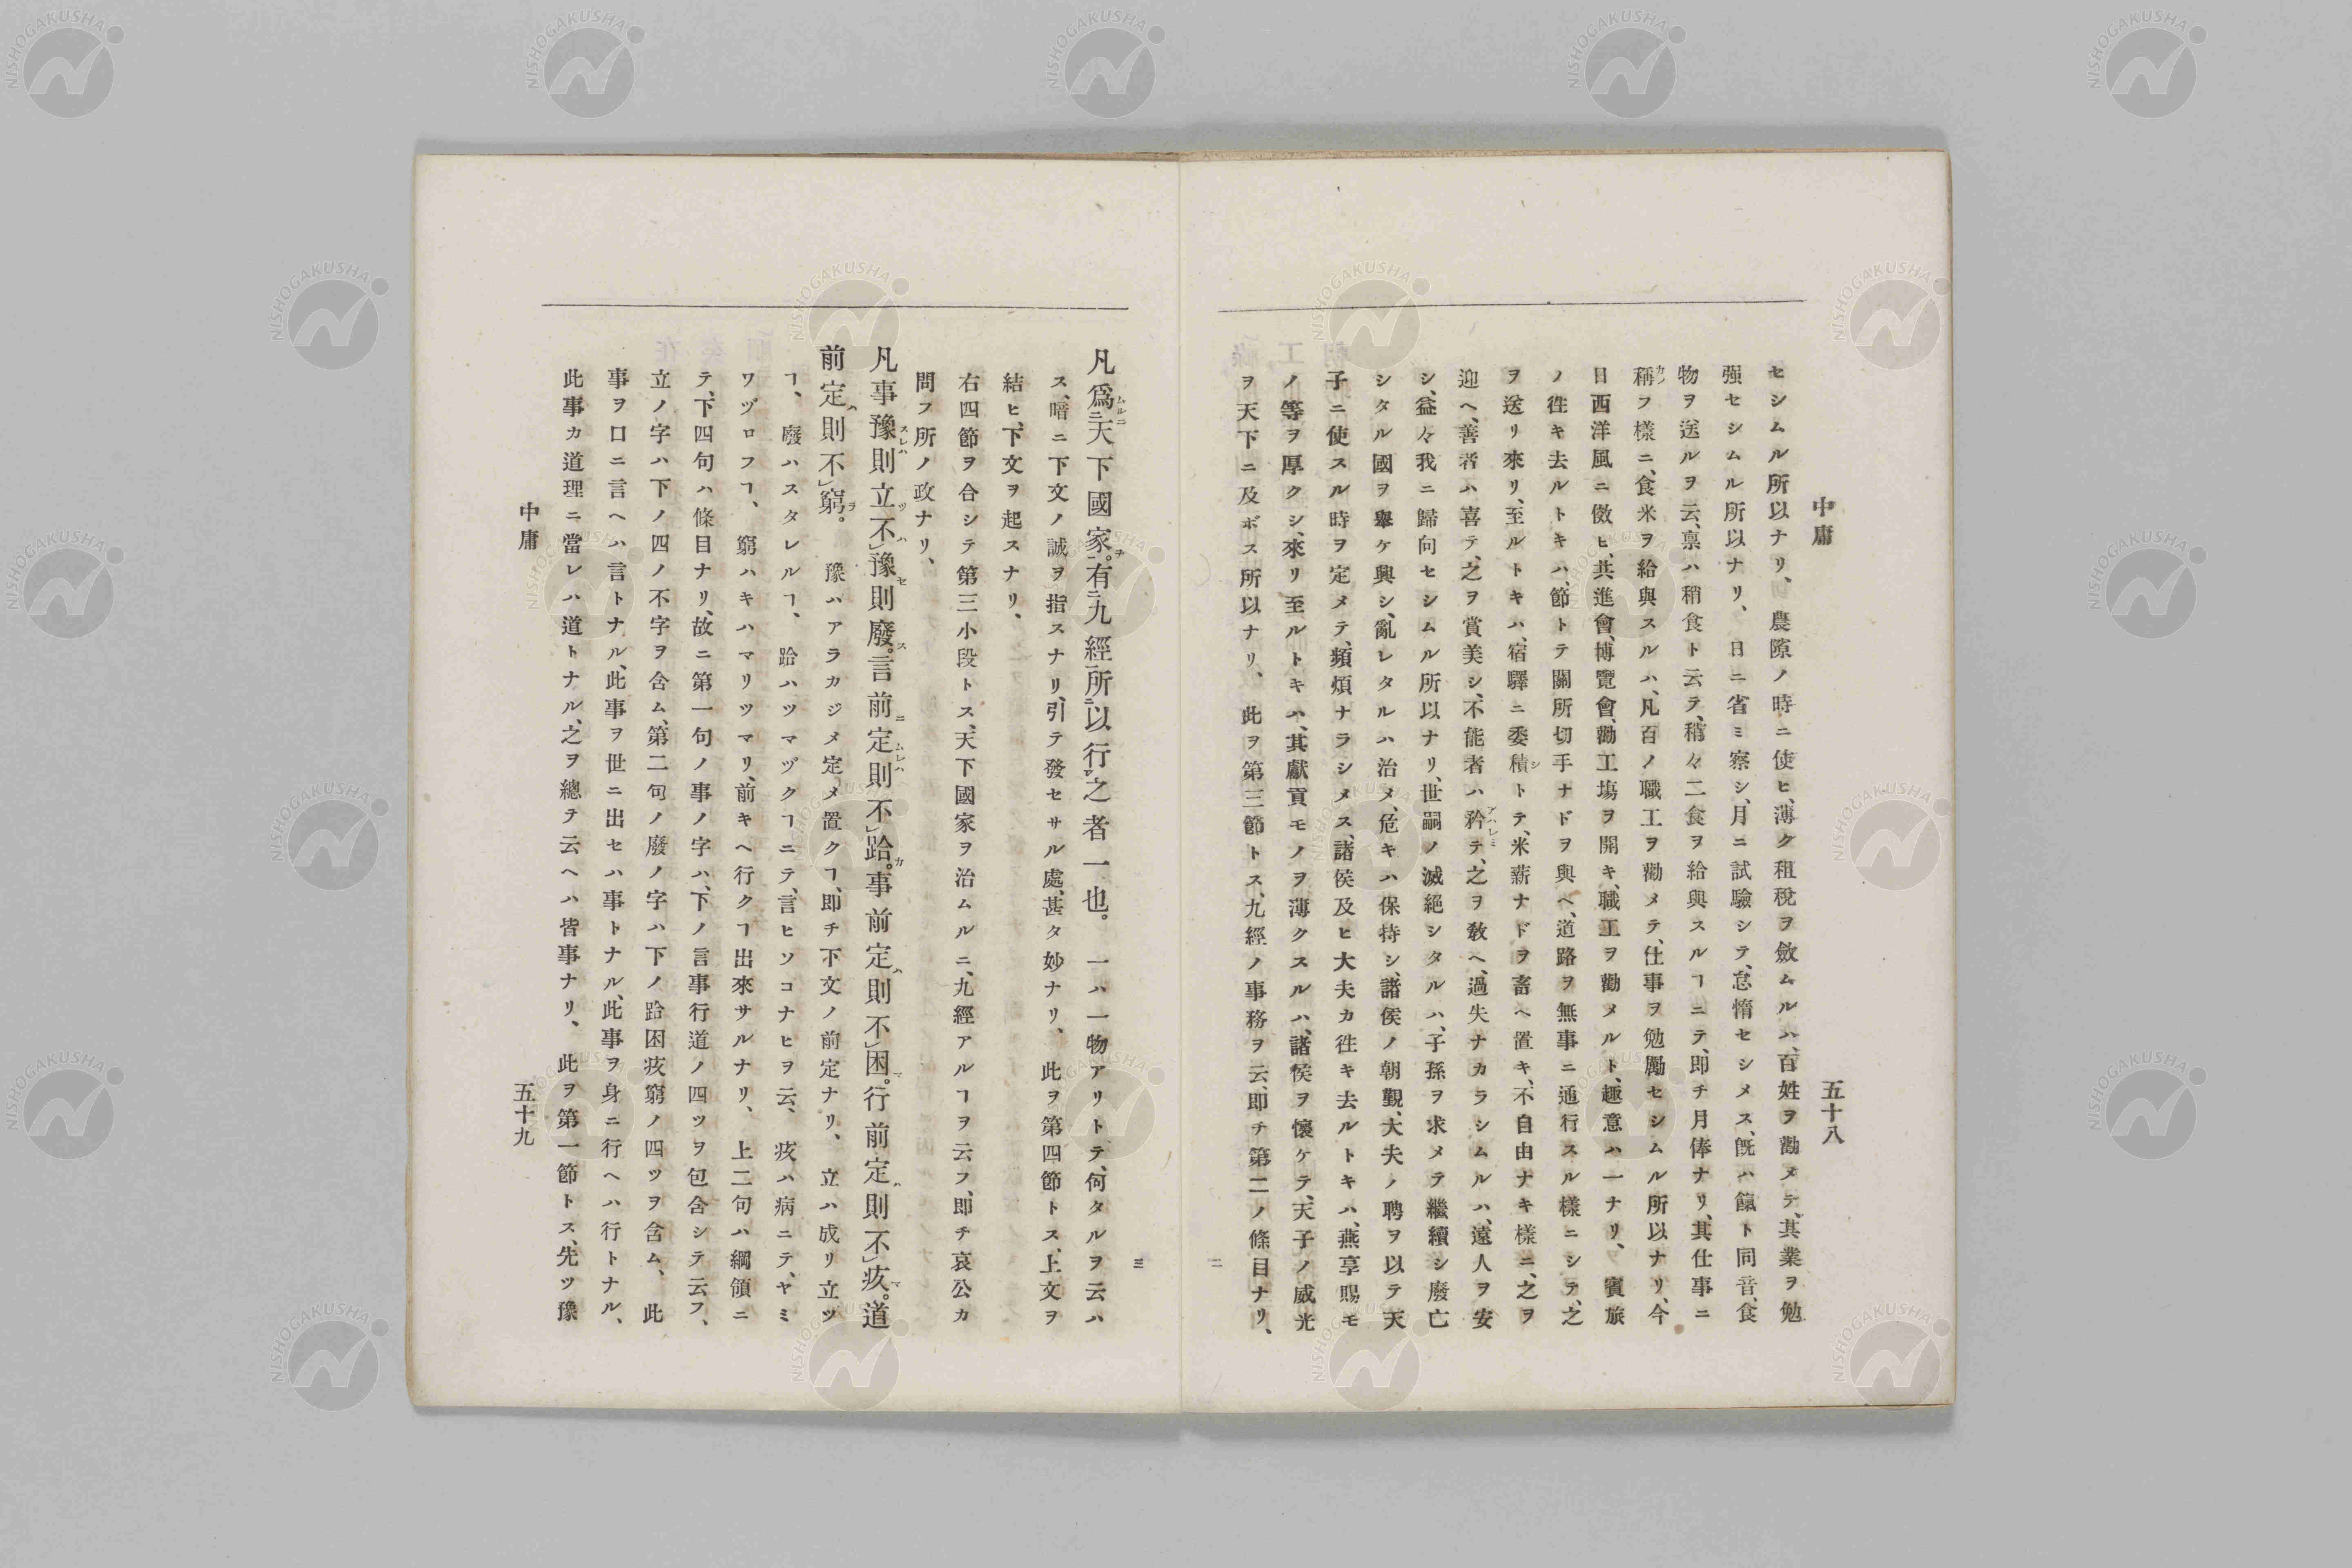 中庸
五十八
セシムル所以ナリ、農隙ノ時ニ使ヒ、薄ク租税ヲ斂ムルハ、百姓ヲ勸メテ、其業ヲ勉
强セシムル所以ナリ、日ニ省ミ察シ、月ニ試驗シテ、怠惰セシメス、既ハ餼ト同音、食
物ヲ送ルヲ云、禀ハ稍食ト云テ、稍々ニ食ヲ給與スルヿニテ、即チ月俸ナリ、其仕事ニ
稱カノフ樣ニ、食米ヲ給與スルハ、凡百ノ職工ヲ勸メテ、仕事ヲ勉勵セシムル所以ナリ、今
日西洋風ニ傚ヒ、共進會、博覽會、勸工塲ヲ開キ、職工ヲ勸メルト、趣意ハ一ナリ、賓旅
ノ徃キ去ルトキハ、節トテ關所切手ナドヲ與ヘ、道路ヲ無事ニ通行スル樣ニシテ、之
ヲ送リ來リ、至ルトキハ、宿驛ニ委積シトテ、米薪ナドヲ畜ヘ置キ、不自由ナキ樣ニ、之ヲ
迎ヘ、善者ハ喜テ、之ヲ賞美シ、不能者ハ矜アハレミテ、之ヲ敎ヘ、過失ナカラシムルハ、遠人ヲ安
シ、益々我ニ歸向セシムル所以ナリ、世嗣ノ滅絕シタルハ、子孫ヲ求メテ繼續シ廢亡
シタル國ヲ擧ケ興シ、亂レタルハ治メ、危キハ保持シ、諸侯ノ朝覲、大夫ノ聘ヲ以テ天
子ニ使スル時ヲ定メテ、頻煩ナラシメス、諸侯及ヒ大夫カ徃キ去ルトキハ、燕享賜モ
ノ等ヲ厚クシ、來リ至ルトキハ、其獻貢モノヲ薄クスルハ、諸侯ヲ懷ケテ、天子ノ威光
ヲ天下ニ及ボス所以ナリ、此ヲ第三節トス、九經ノ事務ヲ云、即チ第二ノ條目ナリ、
凡爲ムルニ二天下國家ヲ一。有二九經一所二以行一レ之者一也。一ハ一物アリトテ、何タルヲ云ハ
ス、暗ニ下文ノ誠ヲ指スナリ、引テ發セサル處、甚タ妙ナリ、此ヲ第四節トス、上文ヲ
結ヒ、下文ヲ起スナリ、
右四節ヲ合シテ第三小段トス、天下國家ヲ治ムルニ、九經アルヿヲ云フ、即チ哀公カ
問フ所ノ政ナリ、
凡事豫スレハ則立ツ不ハレ豫セ則廢ス。言前ニ定ムレハ則不レ跲カ。事前定ハ則不レ困マ。行前定ハ則不レ疚マ。道
前定ハ則不レ窮ラ。豫ハアラカジメ定メ置クヿ、即チ不文ノ前定ナリ、立ハ成リ立ツ
ヿ、廢ハスタレルヿ、跲ハツマヅクヿニテ、言ヒソコナヒヲ云、疚ハ病ニテ、ヤミ
ワヅロフヿ、窮ハキハマリツマリ、前キヘ行クヿ出來サルナリ、上二句ハ綱領ニ
テ、下四句ハ條目ナリ、故ニ第一句ノ事ノ字ハ、下ノ言事行道ノ四ツヲ包含シテ云フ、
立ノ字ハ下ノ四ノ不字ヲ含ム、第二句ノ廢ノ字ハ下ノ跲困疚窮ノ四ツヲ含ム、此
事ヲ口ニ言ヘハ言トナル、此事ヲ世ニ出セハ事トナル、此事ヲ身ニ行ヘハ行トナル、
此事カ道理ニ當レハ道トナル、之ヲ總テ云ヘハ皆事ナリ、此ヲ第一節トス、先ツ豫
中庸
五十九